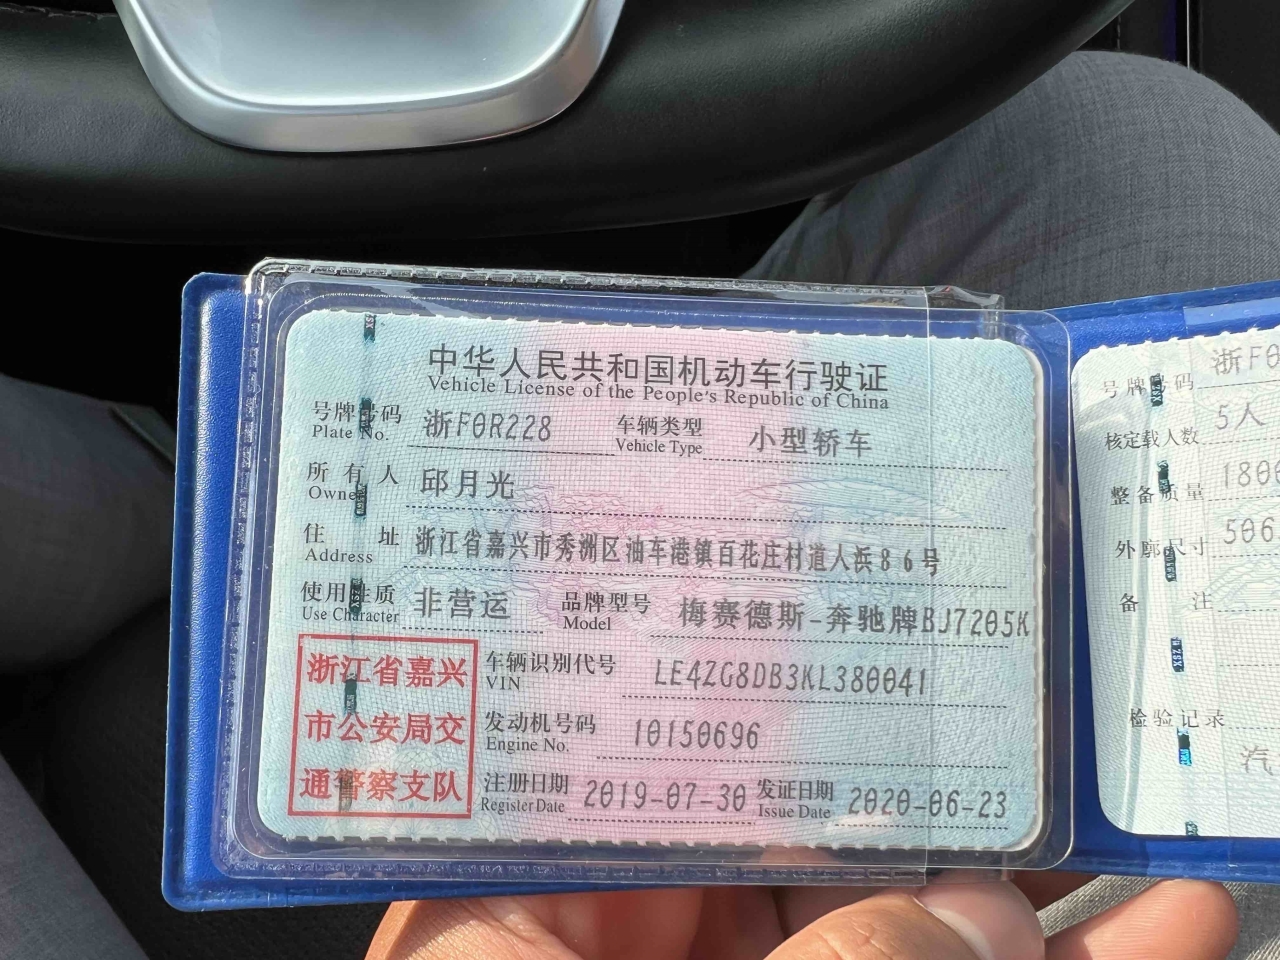 中华人民共和国机动车行驶证
Vehicle License of the People's Republic of China
号牌号码 浙F0R228 车辆类型 小型轿车
Plate No. Vehicle Type
所有人 邱月光
Owner
住址 浙江省嘉兴市秀洲区油车港镇百花庄村道人浜86号
Address
使用性质 非营运 品牌型号 梅赛德斯-奔驰牌BJ7205K
Use Character Model
浙江省嘉兴
市公安局交
通警察支队
车辆识别代号 LE4ZG8DB3KL380041
VIN
发动机号码 10150696
Engine No.
注册日期 2019-07-30 发证日期 2020-06-23
Register Date Issue Date
号牌号码 浙F0
核定载人数 5人
整备质量 180
外廓尺寸 506
备注
检验记录
汽